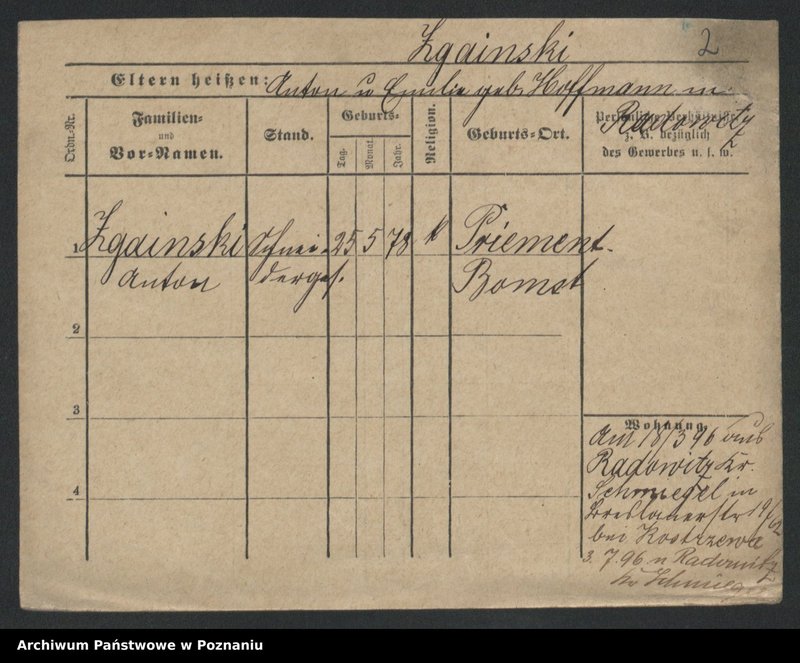 Zgainski 2
Eltern heißen: Anton u Emilie geb. Hoffmann in
Radowitz
Ordn.-Nr.
Familien- und Vor-Namen.
Stand.
Geburts-
Tag.
Monat.
Jahr.
Religion.
Geburts-Ort.
z. B. bezüglich
des Gewerbes u. s. w.
1 Zgainski Schnei- 25 5 78 k Priement
Anton derges. Bomst
2
3
4
Wohnung.
Am 18/3 96 aus
Radowitz Kr.
Schmiegel in
Breslauerstr 19/
bei Kostrzewa
3.7.96 n Radowitz
Kr Schmiegel